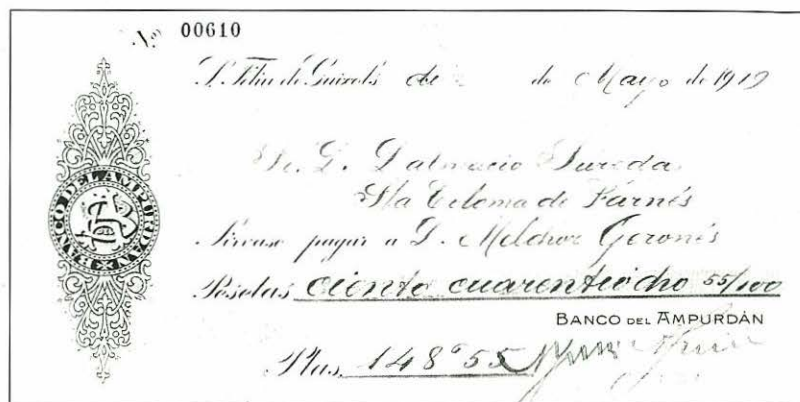 Nº 00610
S. Feliu de Guixols de de Mayo de 1919
Sr. D. Dalmacio Sureda
Sta Coloma de Farnés
Sirvase pagar a D. Melchor Geronés
Pesetas ciento cuarentiocho 55/100
BANCO DEL AMPURDÁN
Ptas. 148'55
BANCO DEL AMPURDÁN